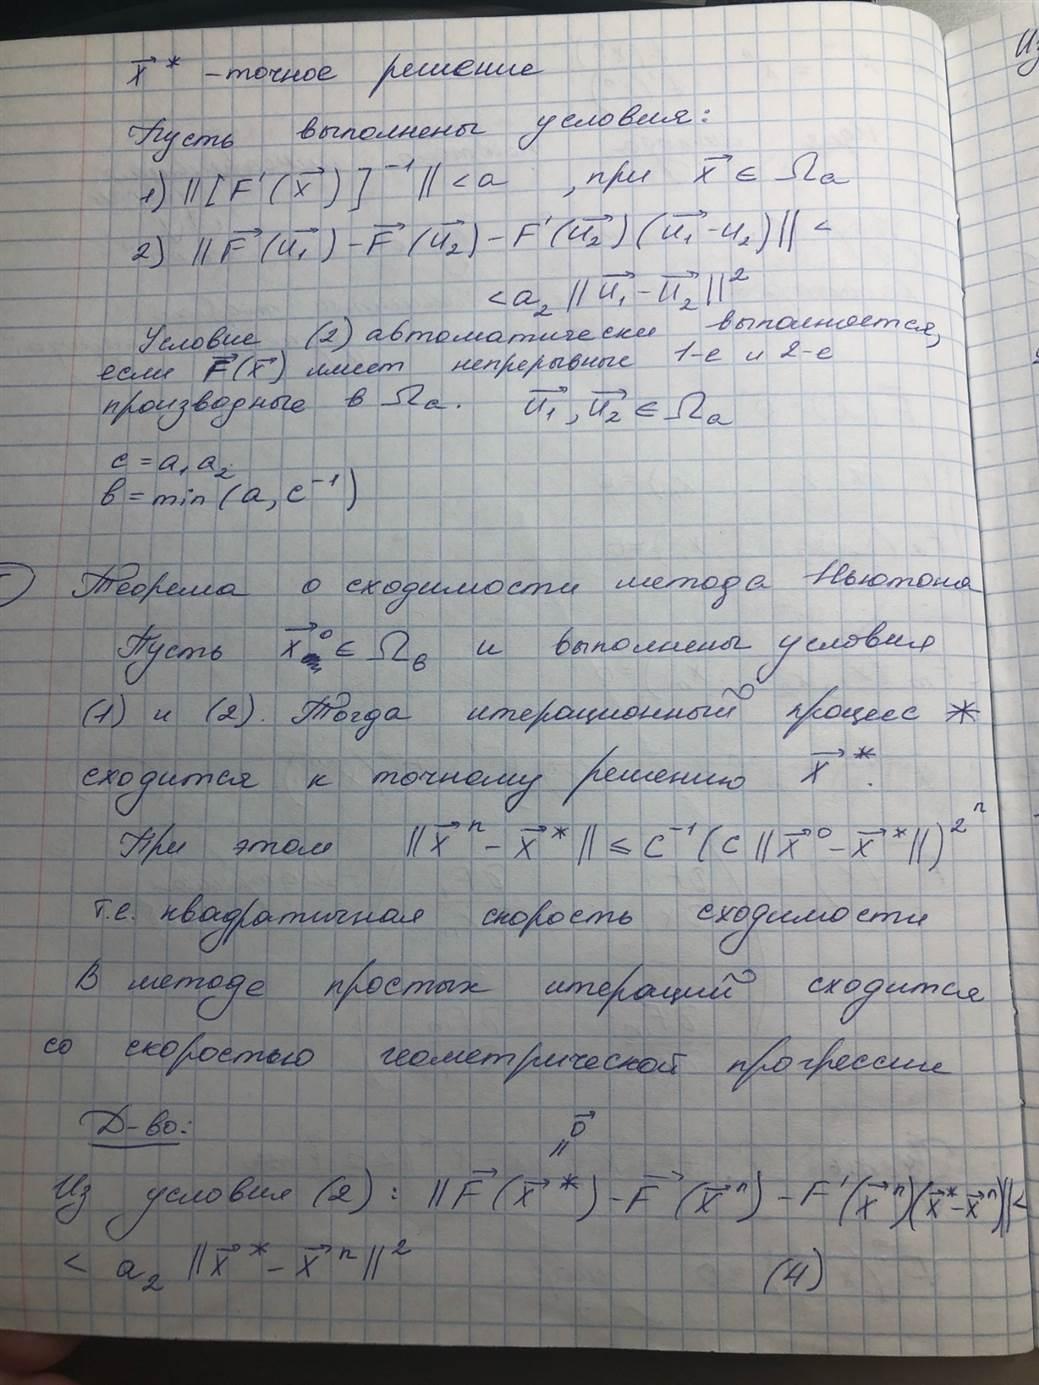 x⃗ * – точное решение
Пусть выполнены условия:
1) ||[F'(x⃗)]⁻¹|| < a , при x⃗ ∈ Ωa
2) ||F⃗(u⃗₁) – F⃗(u⃗₂) – F'(u⃗₂)(u⃗₁ - u₂)|| <
< a₂ ||u⃗₁ – u⃗₂||²
Условие (2) автоматически выполняется,
если F⃗(x⃗) имеет непрерывные 1-е и 2-е
производные в Ωa. u⃗₁, u⃗₂ ∈ Ωa
c = a₁ a₂
b = min (a, c⁻¹)
Теорема о сходимости метода Ньютона
Пусть x⃗⁰ ∈ Ωb и выполнены условия
(1) и (2). Тогда итерационный процесс *
сходится к точному решению x⃗*.
При этом ||x⃗ⁿ – x⃗*|| ≤ c⁻¹ (c ||x⃗⁰ – x⃗*||)^2^n
т.е. квадратичная скорость сходимости
В методе простых итераций сходится
со скоростью геометрической прогрессии
Д-во:
= 0⃗
Из условия (2): ||F⃗(x⃗*) – F⃗(x⃗ⁿ) – F'(x⃗ⁿ)(x⃗* – x⃗ⁿ)|| <
< a₂ ||x⃗* – x⃗ⁿ||² (4)
Из